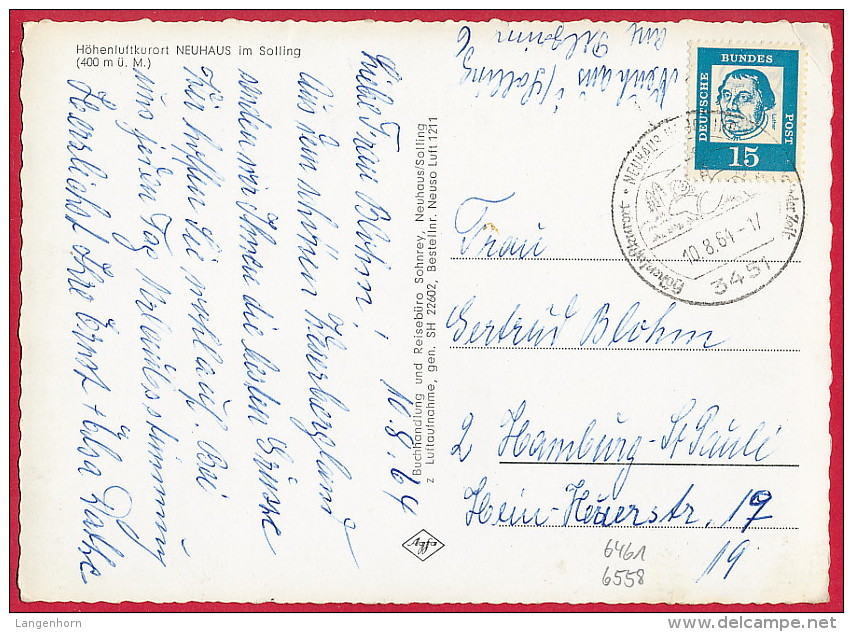 Höhenluftkurort NEUHAUS im Solling
(400 m ü. M.)
10.8.64
Liebe Frau Blohm!
Aus dem schönen Weserbergland
senden wir Ihnen die besten Grüsse
Wir hoffen Sie wohlauf. Bei
uns jeden Tag Urlaubsstimmung
Herzlichst Ihre Ernst + Elsa
Buchhandlung und Reisebüro Sohnrey, Neuhaus/Solling
z Luftaufnahme, gen. SH 22602, Bestellnr. Neuso Luft 1211
Agfa
Neuhaus i/Solling
DEUTSCHE
BUNDES
POST
Luther
15
NEUHAUS IM SOLLING
Höhenluftkurort
10.8.64-17
3451
Frau
Gertrud Blohm
2 Hamburg-St Pauli
Hein-Hoyerstr. 17
19
6461
6558
Langenhorn
delcampe.net